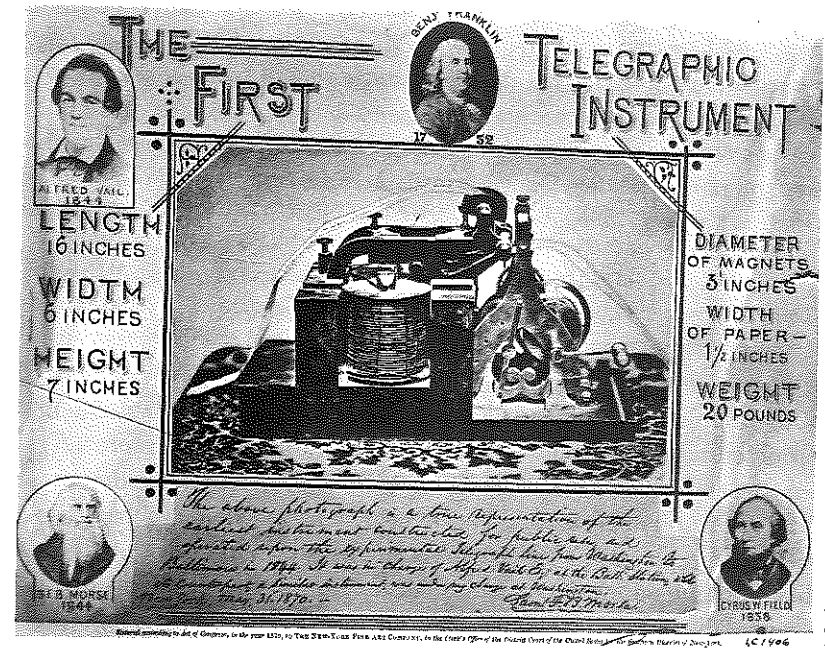 THE
FIRST
BENJ FRANKLIN
1752
TELEGRAPHIC
INSTRUMENT
ALFRED VAIL
1844
LENGTH
16 INCHES
WIDTH
6 INCHES
HEIGHT
7 INCHES
DIAMETER
OF MAGNETS
3 INCHES
WIDTH
OF PAPER-
1 1/2 INCHES
WEIGHT
20 POUNDS
S.F.B. MORSE
1844
The above photograph is a true representation of the
earliest instrument constructed for public use and
operated upon the experimental Telegraph line from Washington to
Baltimore in 1844. It was in charge of Alfred Vail at the Station, while
its counterpart a similar instrument was under my charge at Washington
May 31. 1870.
Sam. F. B. Morse
CYRUS W. FIELD
1858
Entered according to Act of Congress, in the year 1870, by THE NEW-YORK FINE ART COMPANY, in the Clerk's Office of the District Court of the United States for the Southern District of New-York.
LC 1406